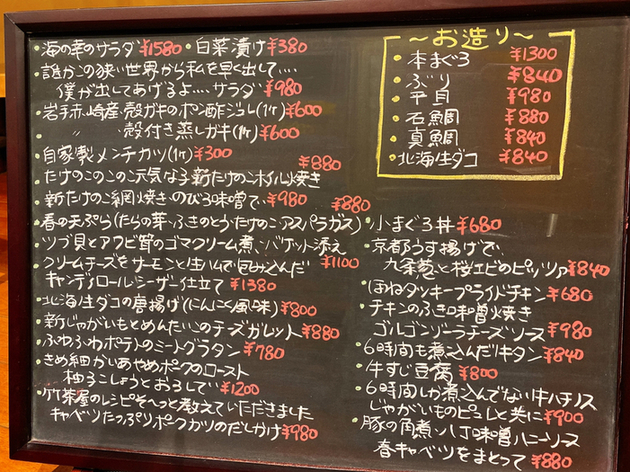 ・海の幸のサラダ ¥1580 ・白菜漬け ¥380
・誰かこの狭い世界から私を早く出して‥‥
僕が出してあげるよ‥‥サラダ ¥980
・岩手赤崎産・殻ガキのポン酢ジュレ(1ケ) ¥600
〃 殻付き蒸しガキ(1ケ) ¥600
・自家製メンチカツ(1ケ) ¥300
・たけのこのこの元気な子新たけのこホイル焼き ¥880
・新たけのこ網焼きのびる味噌で ¥980
・春の天ぷら(たらの芽・ふきのとう・たけのこ・アスパラガス) ¥880
・ツブ貝とアワビ茸のゴマクリーム煮、バゲット添え ¥1100
・クリームチーズをサーモンと生ハムで包み込んだ
キャンディロールシーザー仕立て ¥1380
・北海生ダコの唐揚げ(にんにく風味) ¥800
・新じゃがいもとめんたいこのチーズガレット ¥880
・ふわふわポテトのミートグラタン ¥780
・きめ細かいあやめポークのロースト
柚子こしょうとおろしで ¥1200
・竹茶屋のレシピそぉっと教えていただきました
キャベツたっぷりポークカツのだしかけ ¥980
〜お造り〜
・本まぐろ ¥1300
・ぶり ¥840
・平貝 ¥980
・石鯛 ¥880
・真鯛 ¥840
・北海生ダコ ¥840
・小まぐろ丼 ¥680
・京都うす揚げで
九条葱と桜エビのピッツァ ¥840
・ほねダッキーフライドチキン ¥680
・チキンのふき味噌焼き
ゴルゴンゾーラチーズソース ¥980
・6時間も煮込んだ牛タン ¥840
・牛すじ豆腐 ¥800
・6時間しか煮込んでない牛ハチノス
じゃがいものピュレと共に ¥900
・豚の角煮・八丁味噌ハニーソース
春キャベツをまとって ¥880